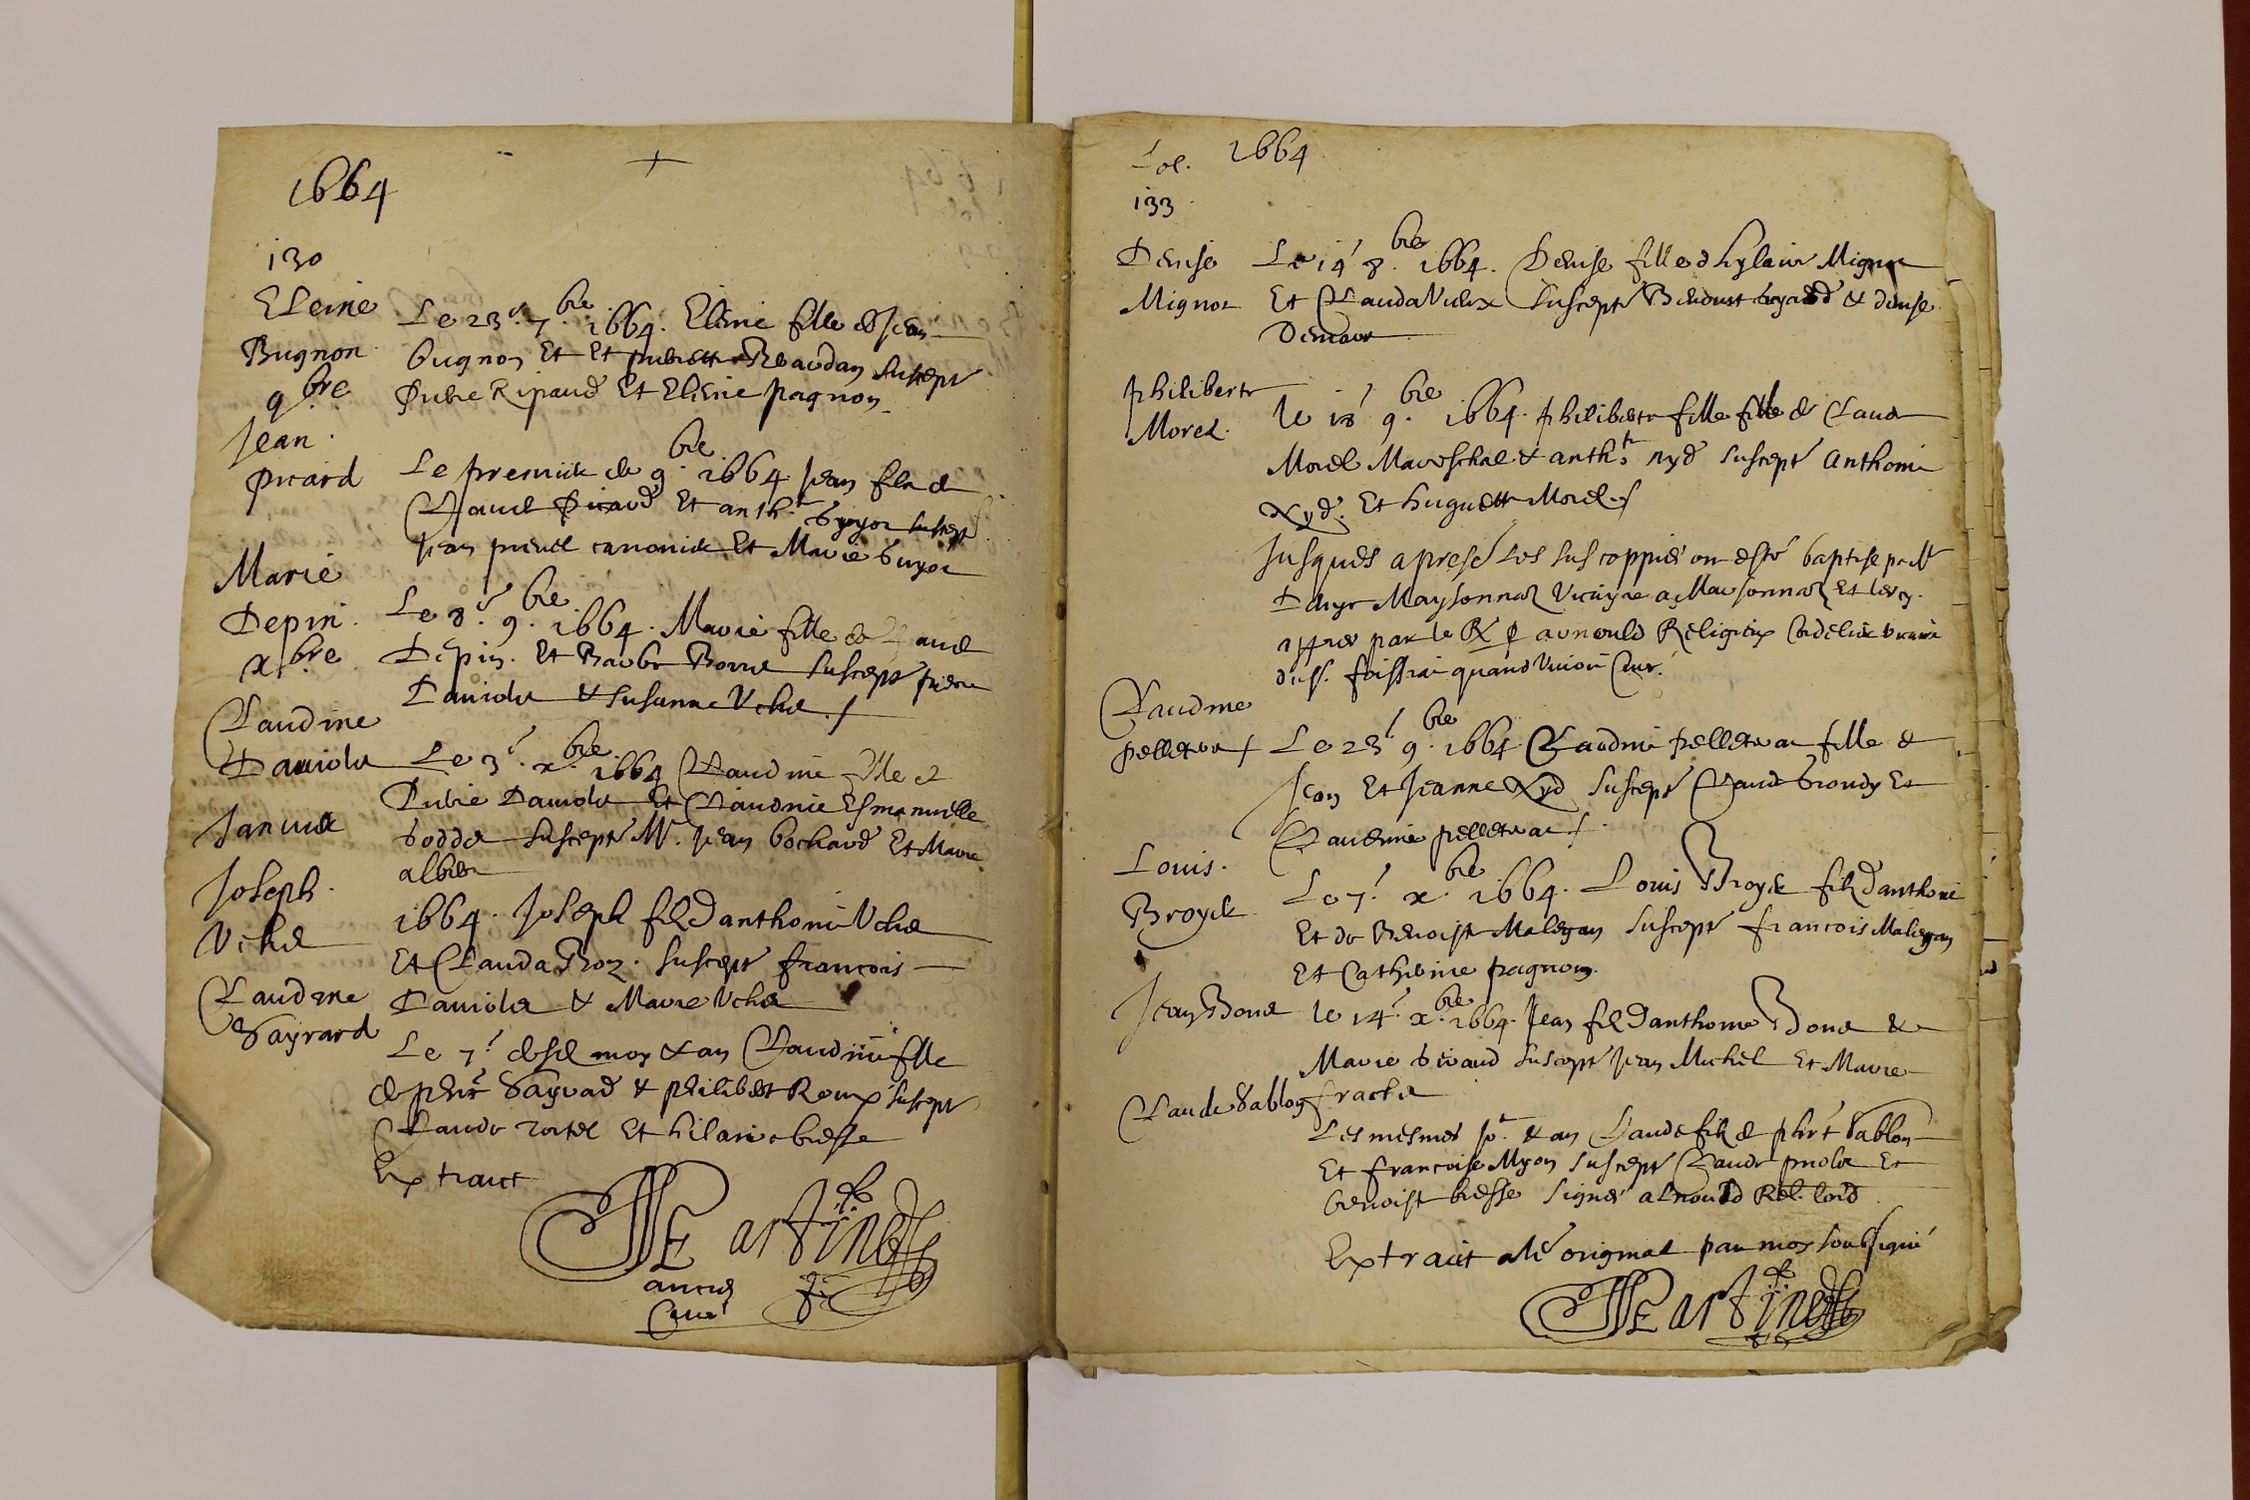 1664
130
Eleine
Bugnon
9bre
Le 23e 7bre 1664. Elenie fille de Jean
bugnon Et Et Beaudan suscept
Ripaud Et Elenie pagnon
Jean
picard
Le premier de 9bre 1664 Jean fils de
Claude Picard Et anth.te buyor suscept
Jean canonier Et Marie buyor
Marie
Depin
xbre
Le 8e 9bre 1664. Marie fille de Claude
Depin. Et Barbe Borne suscept pierre
Daviola & susanne Uche
Claudine
Daviola
Le 3e xbre 1664 Claudine fille de
Daviola Et Claudine Esmanuelle
boddet suscept Mr. Jean bochard Et Marie
albiet
Janvier
Joseph
Uche
1664. Joseph fils d'anthoine Uche
Et Clauda Roz. suscept francois
Daviola & Marie Uche
Claudine
Sayrard
Le 7e desd moy & an Claudine fille
de phert Sayrard & philiberte Roux suscept
Claude Et hilaire bresse
Extraict
Martinet
ancien
Curé
fol. 1664
133
Denise
Mignot
Le 14e 8bre 1664. Denise fille d hylaire Mignot
Et Clauda Vieux suscept Benoist & denise
Philiberte
Morel
le 18e 9bre 1664. philiberte fille fille de Claude
Morel Mareschal & anth.te nyd suscept anthoine
Nyd. Et huguette Morel
Jusques a presé Les sus coppiés on esté baptise par Mr
Maysonnat Vicayre a Marsonnaz Et les cy
appres par le R P arnould Religieux Cordelier
foissiat quand Curé
Claudine
pelletrat
Le 23e 9bre 1664 Claudine pelletrat fille de
Jean Et Jeanne Nyd suscept Claude brondy Et
Claudine pelletrat
Louis
Broyer
Le 7e xbre 1664. Louis Broyer fils d'anthoine
Et de Benoiste Malegan suscept francois Malegan
Et Catherine pagnon.
Jean Bone
le 14e xbre 1664. Jean fils d'anthoine Bone &
Marie biraud suscept Jean Michel Et Marie
frache
Claude Sablon
Les mesmes jor & an Claude fils de phert Sablon
Et francoise Myon suscept Claude Et
benoist bresse signés arnould Rel. Cord
Extraict a lé original par moy soubsigné
Martinet